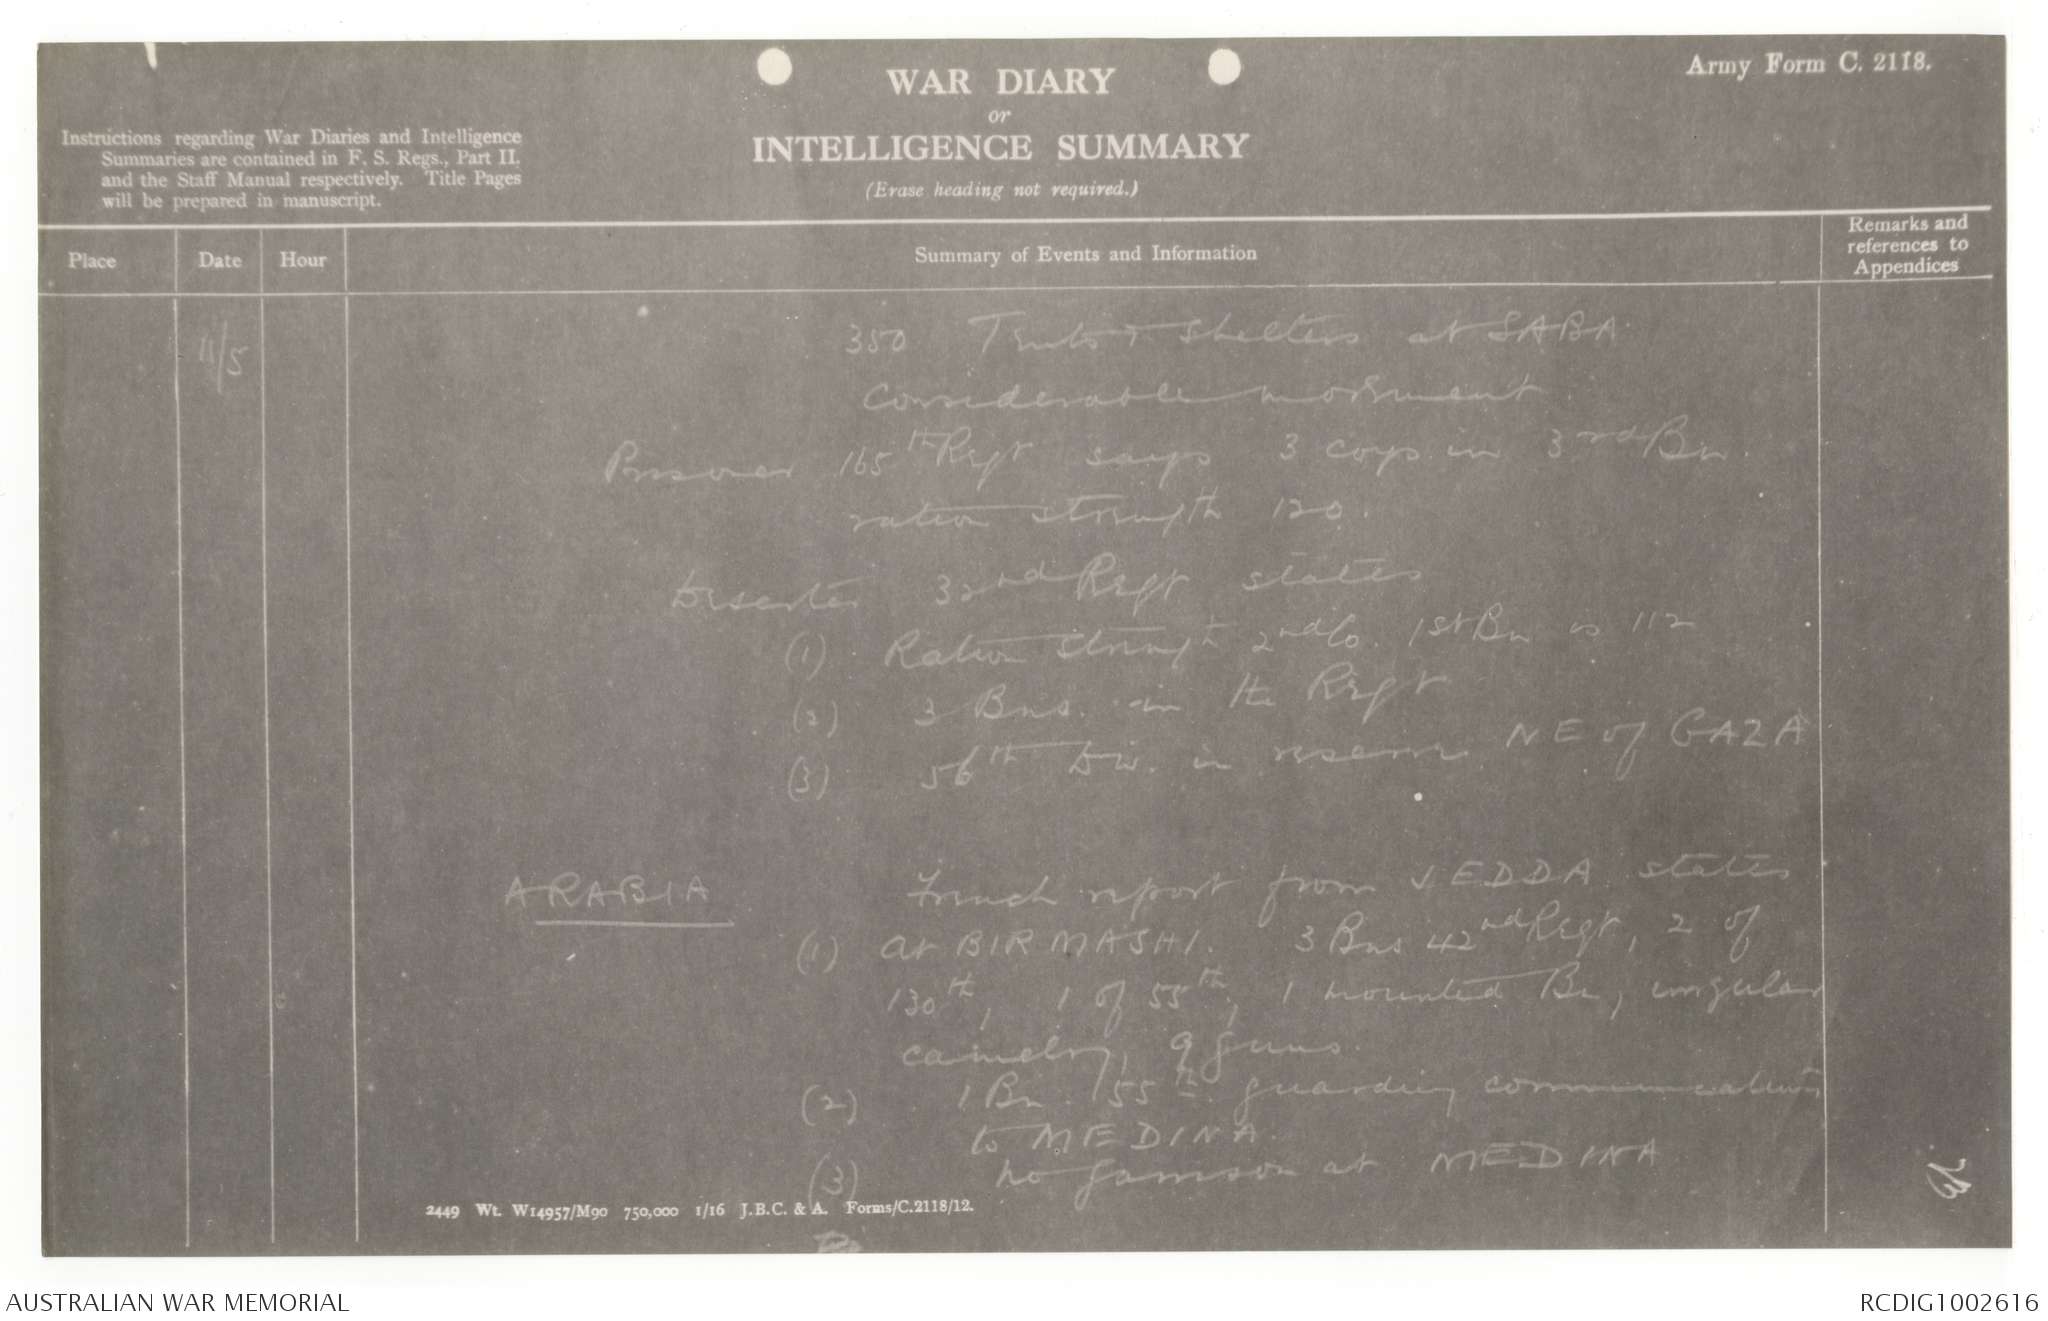 Army Form C. 2118.
WAR DIARY
or
INTELLIGENCE SUMMARY
(Erase heading not required.)
Instructions regarding War Diaries and Intelligence
Summaries are contained in F. S. Regs., Part II.
and the Staff Manual respectively. Title Pages
will be prepared in manuscript.
Place Date Hour Summary of Events and Information Remarks and
references to
Appendices
11/5
350 Tents & Shelters at SABA
Considerable movement
Prisoner 165th Regt says 3 coys in 3rd Bn.
ration strength 120.
Deserter 32nd Regt states
(1) Ration strength 2nd Co. 1st Bn is 112
(2) 3 Bns. in the Regt
(3) 56th Div. in reserve NE of GAZA
ARABIA French report from JEDDA states
(1) at BIR MASHI. 3 Bns 42nd Regt, 2 of
130th, 1 of 55th, 1 mounted Bn, irregular
camelry, 9 guns.
(2) 1 Bn. 55th guarding communications
to MEDINA.
(3) no garrison at MEDINA
2449 Wt. W14957/M90 750,000 1/16 J.B.C. & A. Forms/C.2118/12.
AUSTRALIAN WAR MEMORIAL
RCDIG1002616